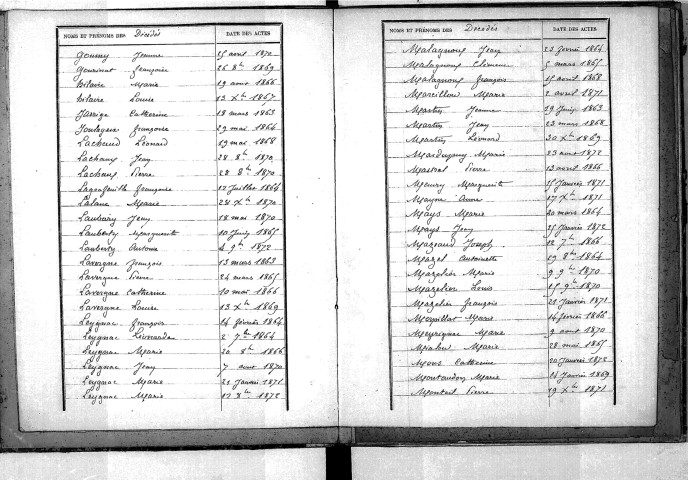 NOMS ET PRÉNOMS DES Décédés DATE DES ACTES
Goumy Jeanne 25 avril 1872
Gouvinat françoise 26 8bre 1869
Hilaire Marie 19 1866
Hilaire Louise 13 Xbre 1867
Jarrige Catherine 18 mars 1863
françoise 29 mai 1864
Lachaud Léonard 19 mai 1868
Lachaux Jean 28 8bre 1870
Lachaux Pierre 28 8bre 1870
françoise 12 Juillet 1864
Lalane Marie 28 Xbre 1870
Jean 18 mai 1870
Lauberty Marguerite 10 Juin 1865
Lauberty Antoine 4 9bre 1872
Lavergne françois 13 mars 1863
Lavergne Pierre 24 mars 1865
Lavergne Catherine 10 mai 1866
Lavergne Laure 13 Xbre 1869
Leygnac françois 14 février 1864
Leygnac Léonarde 2 7bre 1864
Leygnac Marie 20 8bre 1866
Leygnac Jean 7 1870
Leygnac Marie 21 Janvier 1871
Leygnac Marie 17 8bre 1872
NOMS ET PRÉNOMS DES Décédés DATE DES ACTES
Malagnoux Jean 23 février 1864
Malagnoux Clément 5 mars 1865
Malagnoux françois 15 avril 1868
Marcillou Marie 2 avril 1871
Martin Jeanne 29 Juin 1863
Martin Jean 23 mars 1868
Martin Léonard 30 Xbre 1869
Marie 23 1872
Pierre 13 avril 1866
Maury Marguerite 25 Janvier 1871
Mayne Anne 17 Xbre 1871
Mays Marie 20 mars 1864
Mays Jean 25 Janvier 1872
Mazeaud Joseph 12 7bre 1866
Mazel Antoinette 19 8bre 1864
Mazelier Marie 9 9bre 1870
Mazelier Louis 15 9bre 1870
Mazelier françois 21 Janvier 1871
Marie 14 février 1866
Meyrignac Marie 9 1870
Mialou Marie 28 mai 1865
Mons Catherine 20 Janvier 1872
Montaudon Marie 24 Janvier 1869
Monteil Pierre 19 Xbre 1871